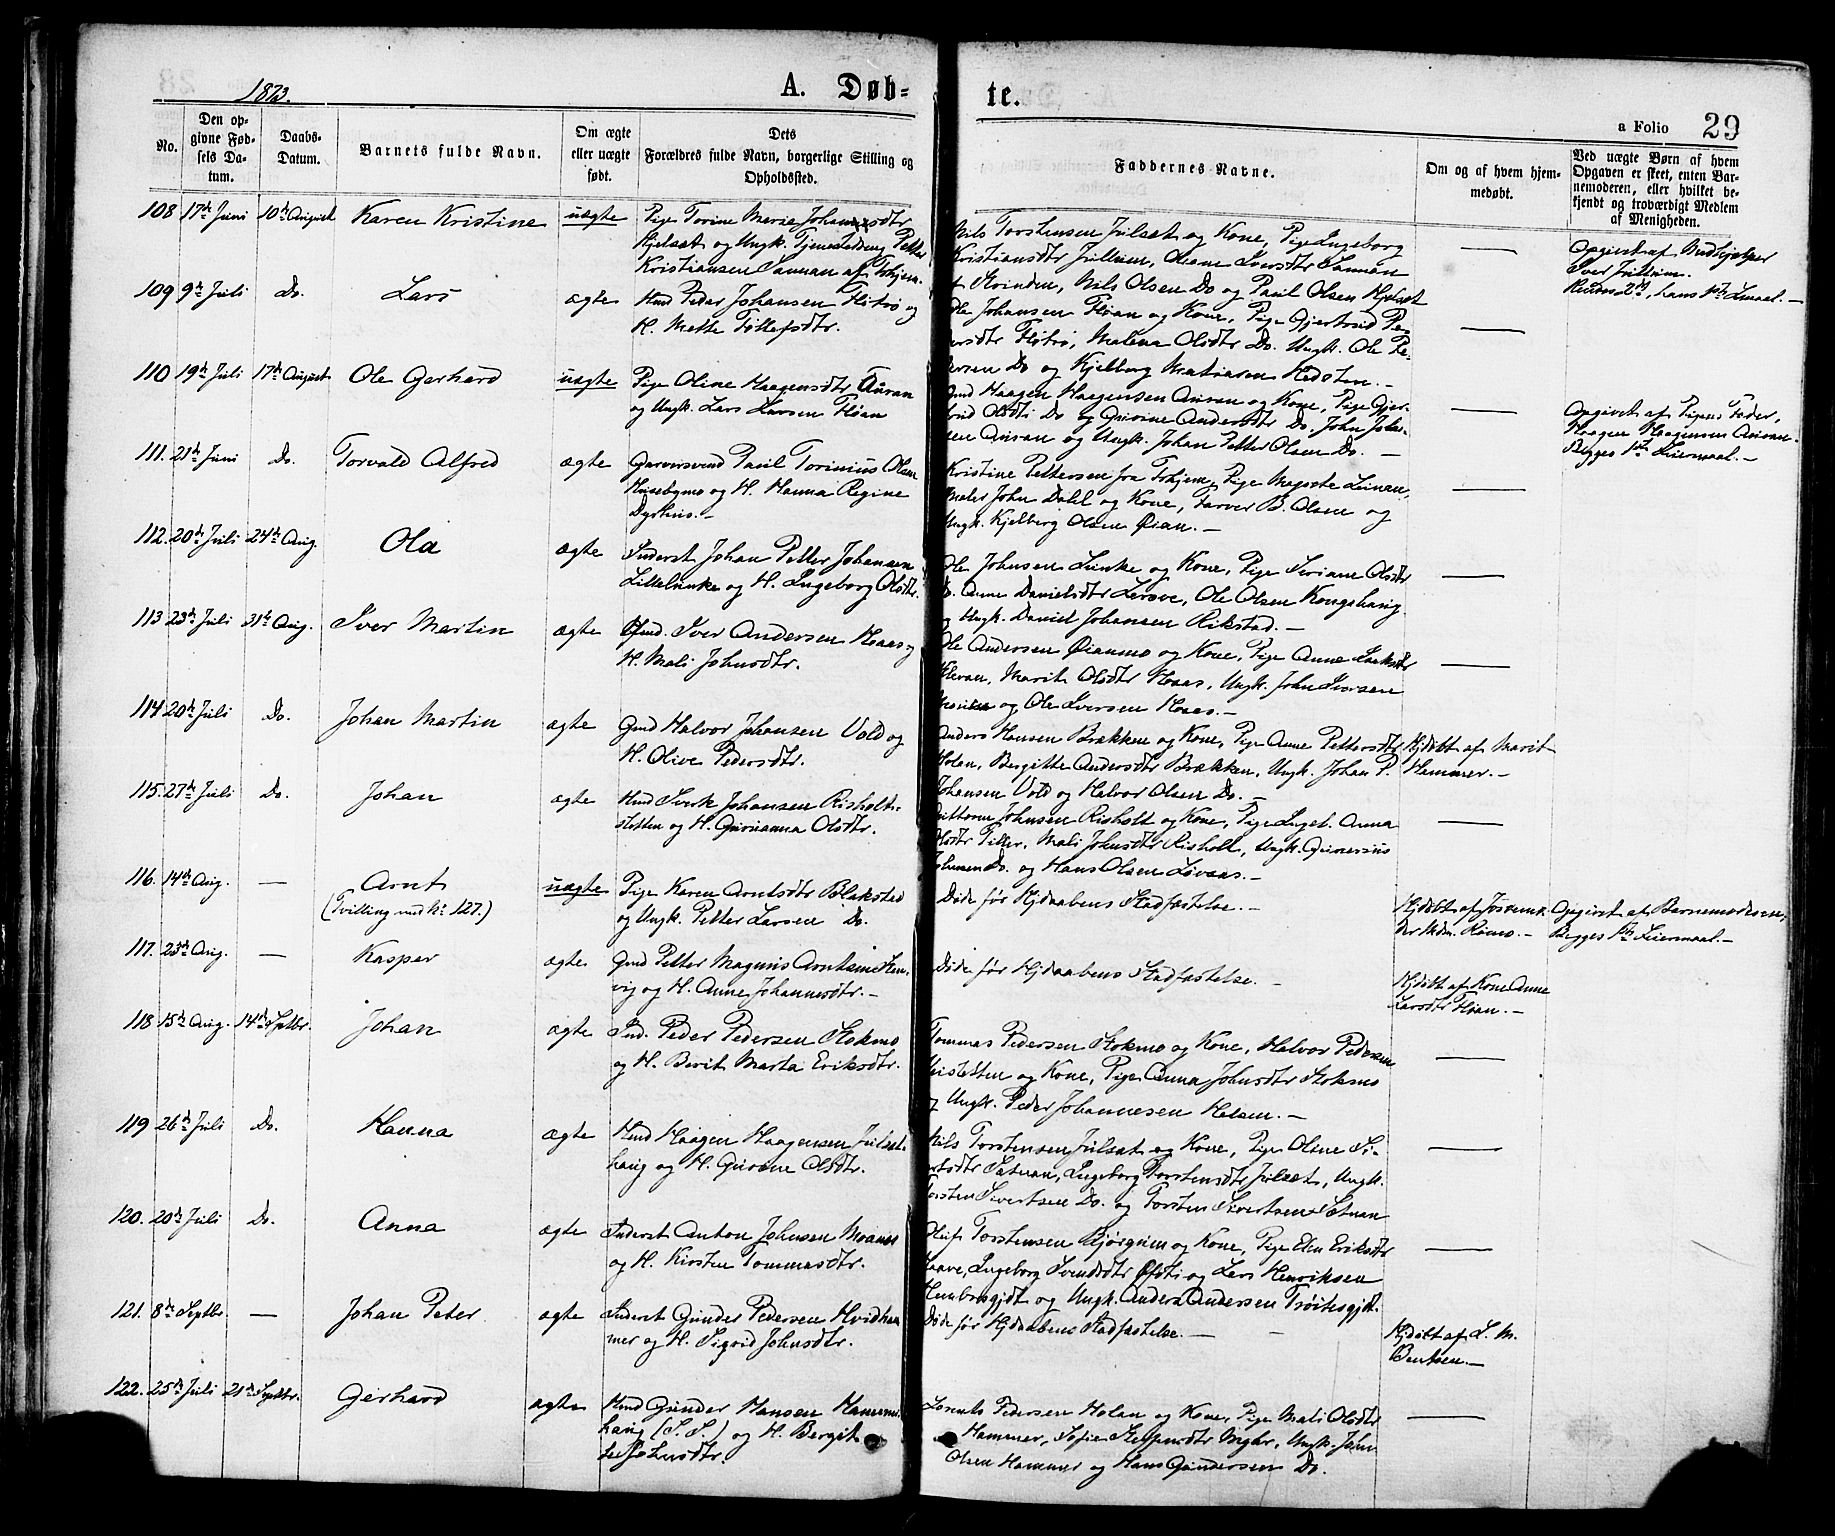 1873.
A. Døb-
te.
a Folio 29
No.
Den op-
givne Fød-
sels Da-
tum.
Daabs-
Datum.
Barnets fulde Navn.
Om ægte
eller uægte
født.
Dets
Forældres fulde Navn, borgerlige Stilling og
Opholdssted.
Faddernes Navne.
Om og af hvem hjem-
medøbt.
Ved uægte Børn af hvem
Opgaven er skeet, enten Bar-
nemoderen, eller hvilket be-
kjendt og troværdigt Medlem
af Menigheden.
108 17de Juni 10de August Karen Kristine uægte
Pige Torine Maria Johansdtr
Hjelset og Ungk. Petter
Kristiansen
Nils Torstensen Julsæt og Kone, Pige Ingeborg
Kristiansdtr Julium, Olene Iversdtr
Nils Olsen Do og Paul Olsen Hjelset
Opgivet af Medhjelper
Iver Julium.
109 9de Juli Do. Lars ægte
Hmd Peder Johansen Fløtrø og
H. Mette
Ole Johansen Fløan og Kone, Pige Gjertrud Pe-
dersdtr Fløtrø, Malena Olsdtr Do. Ungk. Ole Pe-
dersen Do og Kjelberg
110 19de Juli 17de August Ole Gerhard uægte
Pige Oline Haagensdtr Auran
og Ungk. Lars Larsen Fløan
Gmd Haagen Haagensen Auran og Kone, Pige Gjer-
trud Olsdtr Do og Andersdtr Do. John John-
sen Auran og Ungk. Johan Petter Olsen Do. —
Opgivet af Pigens Fader,
Haagen Haagensen Auran.
Begges 1ste Leiermaal. —
111. 21de Juni Do. Torvald Alfred ægte
Garversvend Paul Torinius Olsen
Husebymo og H. Hanna Regine
Kristine Pettersen fra Thjem, Pige
Maler John Dahl og Kone, Farver B. Olsen og
Ungk. Kjelberg Olsen Øian. —
112. 20de Juli 24de Aug. Ola ægte
Inderst Johan Petter Johansen
og H. Ingeborg Olsdtr.
Ole Johnsen og Kone, Pige Olsdtr
Do. Anne Danielsdtr Ole Olsen Kongshaug
og Ungk. Daniel Johansen Rikstad. —
113 23de Juli 21de Aug. Iver Martin ægte
Iver Andersen Haas og
H. Mali Johnsdtr.
Ole Andersen Øianmo og Kone, Pige Anne
Marit Olsdtr Haas, Ungk. John Iversen
og Ole Iversen Haas. —
114. 20de Juli Do. Johan Martin ægte
Gmd Halvor Johansen Vold og
H. Olive Pedersdtr.
Anders Hansen Brækken og Kone, Pige Anne Pettersdtr
Holen, Bergitte Andersdtr Brækken, Ungk. Johan P.
Johansen Vold og Halvor Olsen Do. —
Hjdøbt af Marit
Hammer. —
115. 27de Juli Do. Johan ægte
Hmd Johansen Risholt-
sletten og H. Olsdtr.
Guttorm Johnsen Risholt og Kone, Pige Ingeb. Anna
Olsdtr Tiller, Mali Johnsdtr Risholt, Ungk.
Johnsen Do. og Hans Olsen Løvaas. —
116. 14de Aug. — Arnt uægte
(Tvilling med No 127.)
Pige Karen Arntsdtr Blakstad
og Ungk. Petter Larsen Do.
Døde før Hjdaabens Stadfæstelse. —
Hjdøbt af
Opgivet af Barnemoderen,
Begges 1ste Leiermaal. —
117. 23de Aug. — Kasper ægte
Gmd Petter Magnus Arntsen
og H. Anne Johannesdtr. —
Døde før Hjdaabens Stadfæstelse. —
Hjdøbt af Kone Anne
Larsdtr Fløan. —
118 15de Aug. 14de Septbr. Johan ægte
Ind. Peder Pedersen Stokmo
og H. Berit Marta Eriksdtr.
Tommas Pedersen Stokmo og Kone, Halvor Pedersen
og Kone, Pige Anna Johnsdtr Stokmo
og Ungk. Peder Johannesen —
119 26de Juli Do. Hanna ægte
Hmd Haagen Haagensen Julset-
haug og H. Olsdtr.
Nils Torstensen Julsæt og Kone, Pige Oline Si-
vertsdtr Ingeborg Torstensdtr Julsæt, Ungk.
Torsten Sivertsen Do. og Torsten Sivertsen
120. 20de Juli Do. Anna ægte
Inderst Anton Johnsen
og H. Kirsten Tommasdtr.
Oluf Torstensen Bjørgum og Kone, Pige Elen Eriksdtr
Ingeborg Svendsdtr og Lars Henriksen
og Ungk. Anders Andersen
121. 8de Septbr. — Johan Peter ægte
Inderst Gunder Pedersen Hvidham-
mer og H. Sigrid Johnsdtr.
Døde før Hjdaabens Stadfæstelse. — —
Hjdøbt af L. M.
Bentsen. —
122. 25de Juli 21de Septbr. Gerhard ægte
Hmd Gunder Hansen Hammer-
haug (S. S.) og H. Bergit-
te Johnsdtr.
Lornts Pedersen Holan og Kone, Pige Mali Olsdtr
Hammer, Sofie Ungk. John
Olsen Hammer og Hans Gundersen Do.